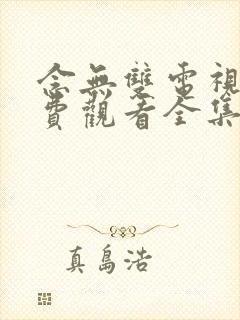 念無雙電視
費觀看全集
真島浩